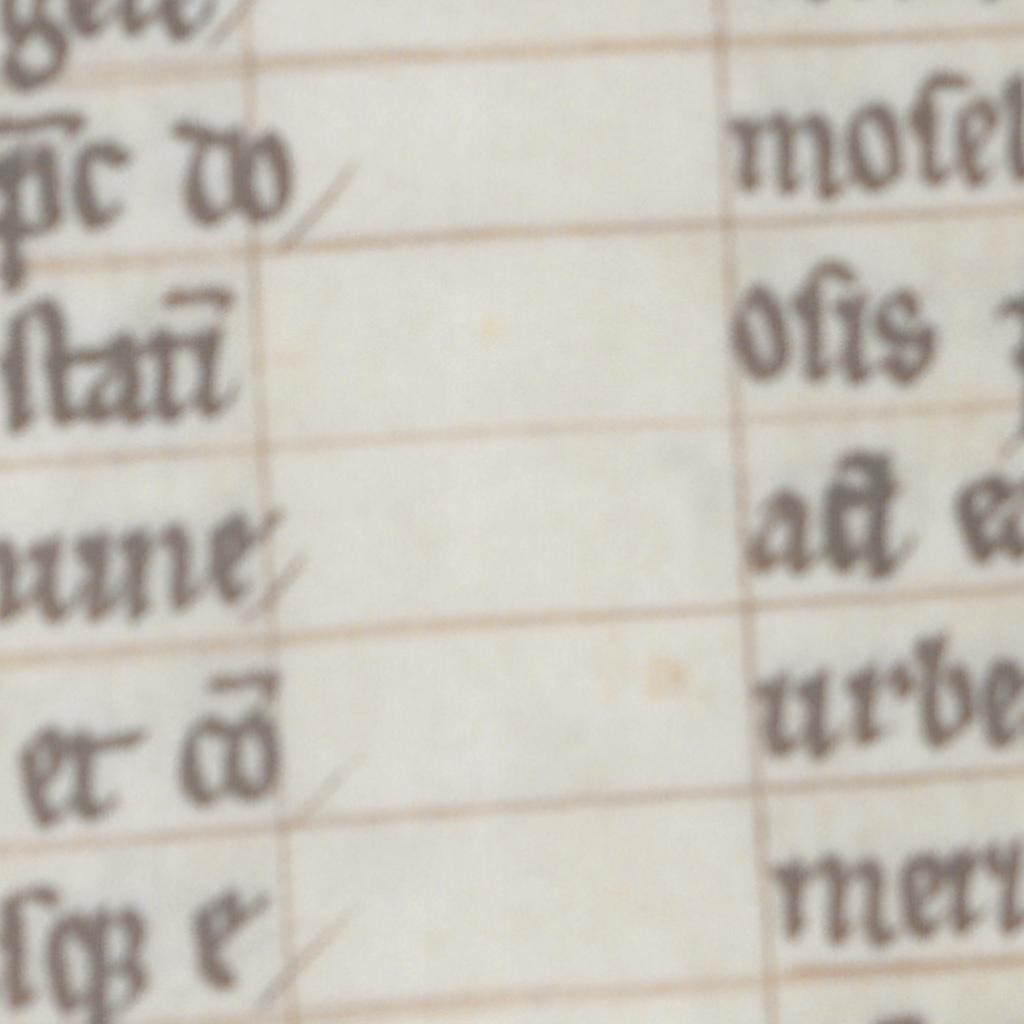 p̄c do
ſtatī
mune
et cō
ſqꝫ e
moſel
oſis
act ea
urbe
meri